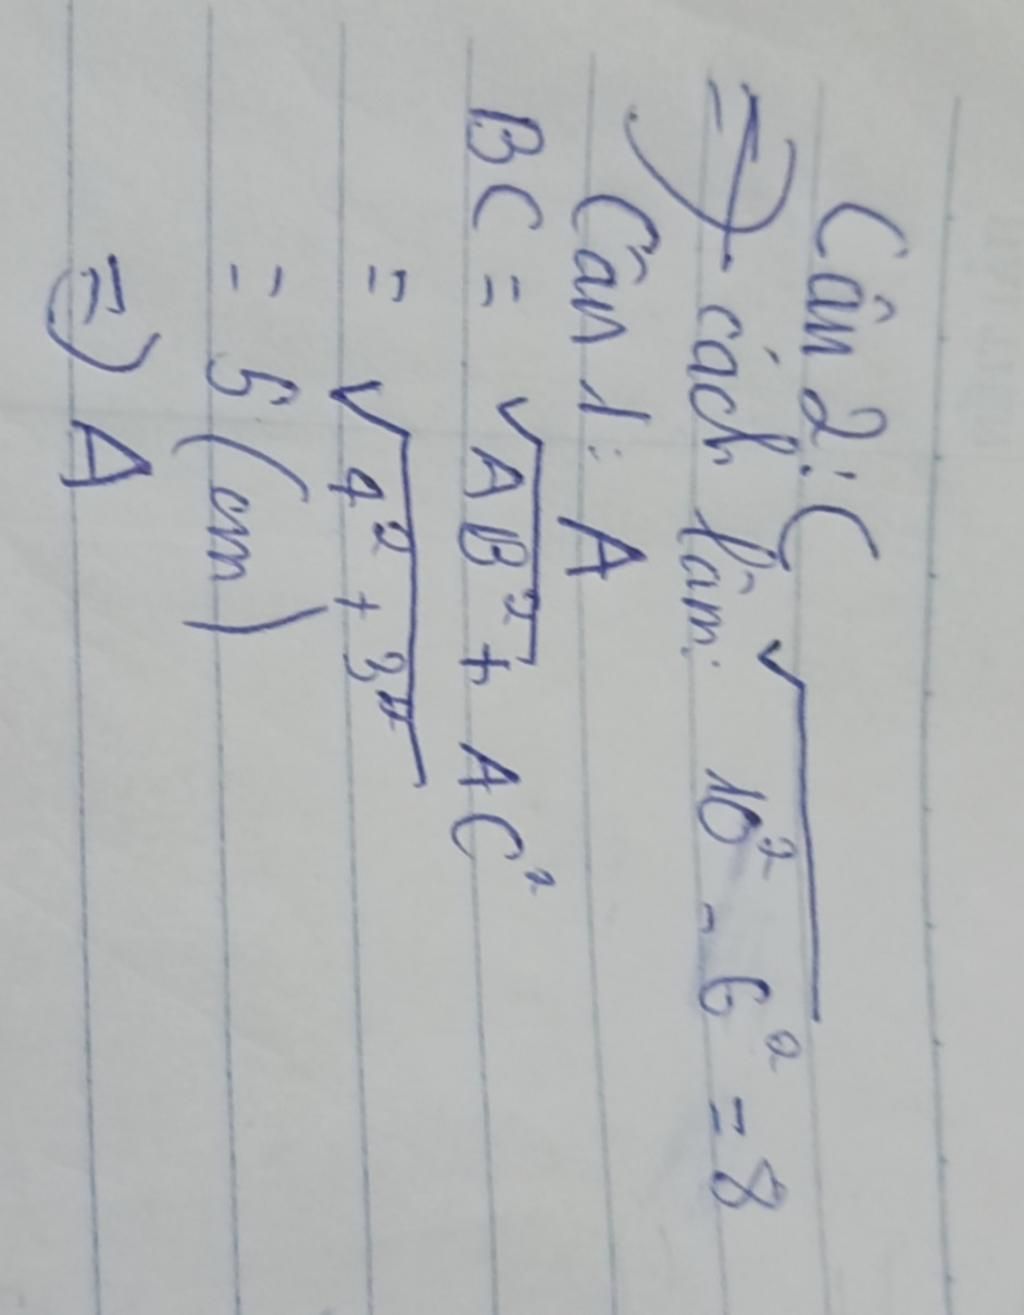 Cân 2: C
=> cách làm: √10² - 6² = 8
Cân 1: A
BC = √AB² + AC²
= √4² + 3²
= 5 (cm)
=> A